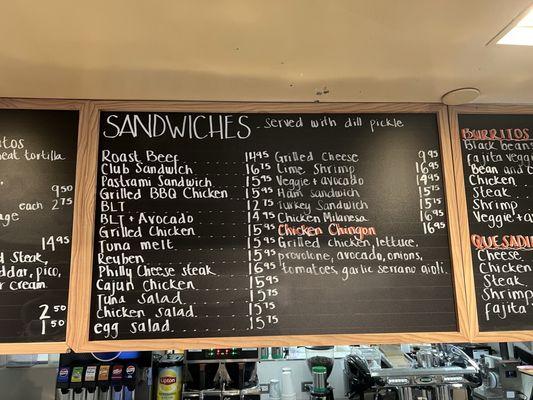 SANDWICHES - served with dill pickle
Roast Beef 14.95
Club Sandwich 16.75
Pastrami Sandwich 15.75
Grilled BBQ Chicken 15.95
BLT 12.75
BLT + Avocado 14.75
Grilled Chicken 15.95
Tuna melt 15.95
Reuben 15.95
Philly Cheese steak 16.95
Cajun Chicken 15.95
Tuna Salad 15.75
Chicken salad 15.75
egg salad 15.75
Grilled Cheese 9.95
Lime Shrimp 16.95
Veggie + avocado 14.95
Ham Sandwich 15.75
Turkey Sandwich 15.75
Chicken Milanesa 16.95
Chicken Chingon 16.95
Grilled Chicken, lettuce,
provolone, avocado, onions,
tomatoes, garlic serrano aioli.
tortilla
9.50
each 2.75
14.95
Steak,
pico,
cream
2.50
1.50
BURRITOS
Black beans
fajita veggi
Bean and
Chicken
Steak
Shrimp
Veggie +
QUESADI
Cheese
Chicken
Steak
Shrimp
fajita
pepsi
Lipton